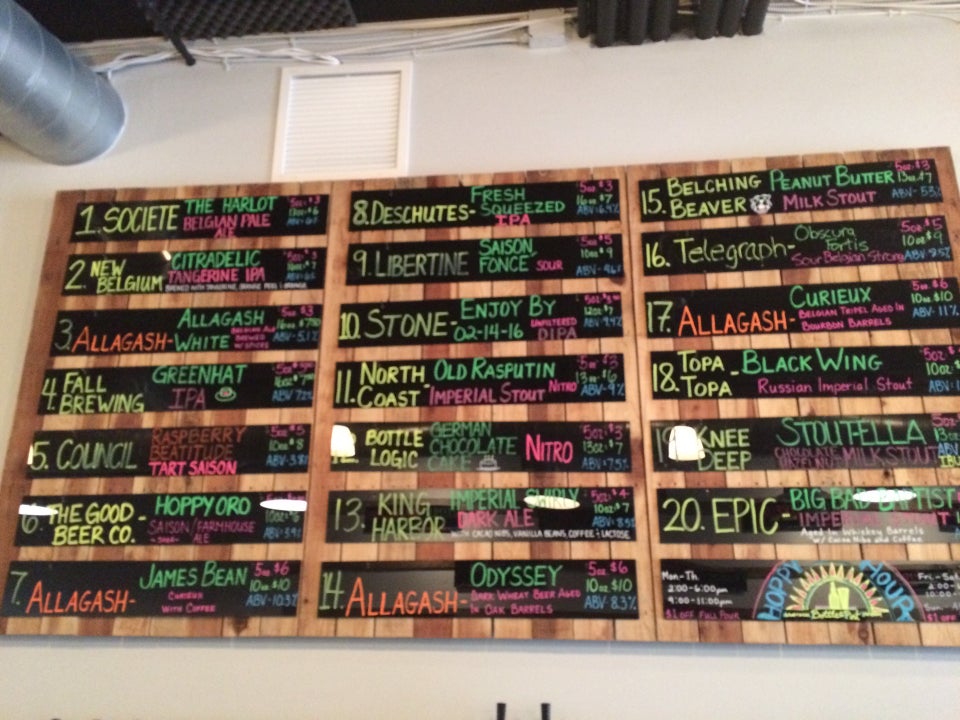 1. SOCIETE THE HARLOT
BELGIAN PALE
ALE
5oz $3
2. NEW
BELGIUM
CITRADELIC
TANGERINE IPA
BREWED WITH TANGERINE, ORANGE PEEL
3. ALLAGASH-
ALLAGASH
WHITE
BELGIAN ALE
BREWED
W/ SPICES
5oz $3
ABV-5.1%
4. FALL
BREWING
GREENHAT
IPA
5. COUNCIL
RASPBERRY
BEATITUDE
TART SAISON
5oz $5
10oz $8
6. THE GOOD -
BEER CO.
HOPPY ORO
SAISON/FARMHOUSE
ALE
7. ALLAGASH-
JAMES BEAN
CURIEUX
WITH COFFEE
5oz $6
10oz $10
ABV-10.3%
8. DESCHUTES-
FRESH
SQUEEZED
IPA
5oz $3
16oz $7
ABV-6.4%
9. LIBERTINE
SAISON
FONCE SOUR
5oz $5
10oz $9
10. STONE-
ENJOY BY
02-14-16
UNFILTERED
DIPA
ABV-9.4%
11. NORTH -
COAST
OLD RASPUTIN
IMPERIAL STOUT NITRO
ABV-9%
12. BOTTLE
LOGIC
GERMAN
CHOCOLATE
CAKE
NITRO
5oz $3
13oz $7
ABV-7.5%
13. KING
HARBOR
IMPERIAL SWIRLY
DARK ALE
WITH CACAO NIBS, VANILLA BEANS, COFFEE + LACTOSE
5oz $4
10oz $7
ABV-8.5%
14. ALLAGASH-
ODYSSEY
DARK WHEAT BEER AGED
IN OAK BARRELS
5oz $6
10oz $10
ABV-8.3%
15. BELCHING
BEAVER
PEANUT BUTTER
MILK STOUT
5oz $3
13oz $7
ABV-5.3%
16. Telegraph-
Obscura
Fortis
Sour Belgian Strong
5oz $5
10oz $9
ABV-9.5%
17. ALLAGASH-
CURIEUX
BELGIAN TRIPEL AGED IN
BOURBON BARRELS
5oz $6
10oz $10
ABV-11%
18. TOPA -
TOPA
BLACK WING
Russian Imperial Stout
5oz
10oz
ABV-
19. KNEE
DEEP
STOUTELLA
CHOCOLATE
HAZELNUT MILK STOUT
5oz
13oz
ABV
20. EPIC-
BIG BAD BAPTIST
IMPERIAL STOUT
Aged in Whiskey Barrels
w/ Cacao Nibs and Coffee
Mon-Th.
2:00-6:00pm
9:00-11:00pm
$1 OFF FULL POUR
HOPPY HOUR
Fri-Sat
2:00-
10:00-
Sun.
$1 OFF